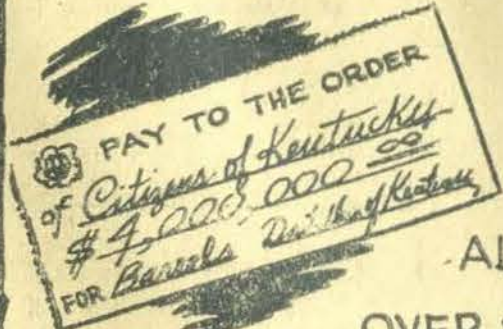 PAY TO THE ORDER
of Citizens of Kentucky
$ 4,000,000 00
FOR Barrels of Kentucky
AL
OVER